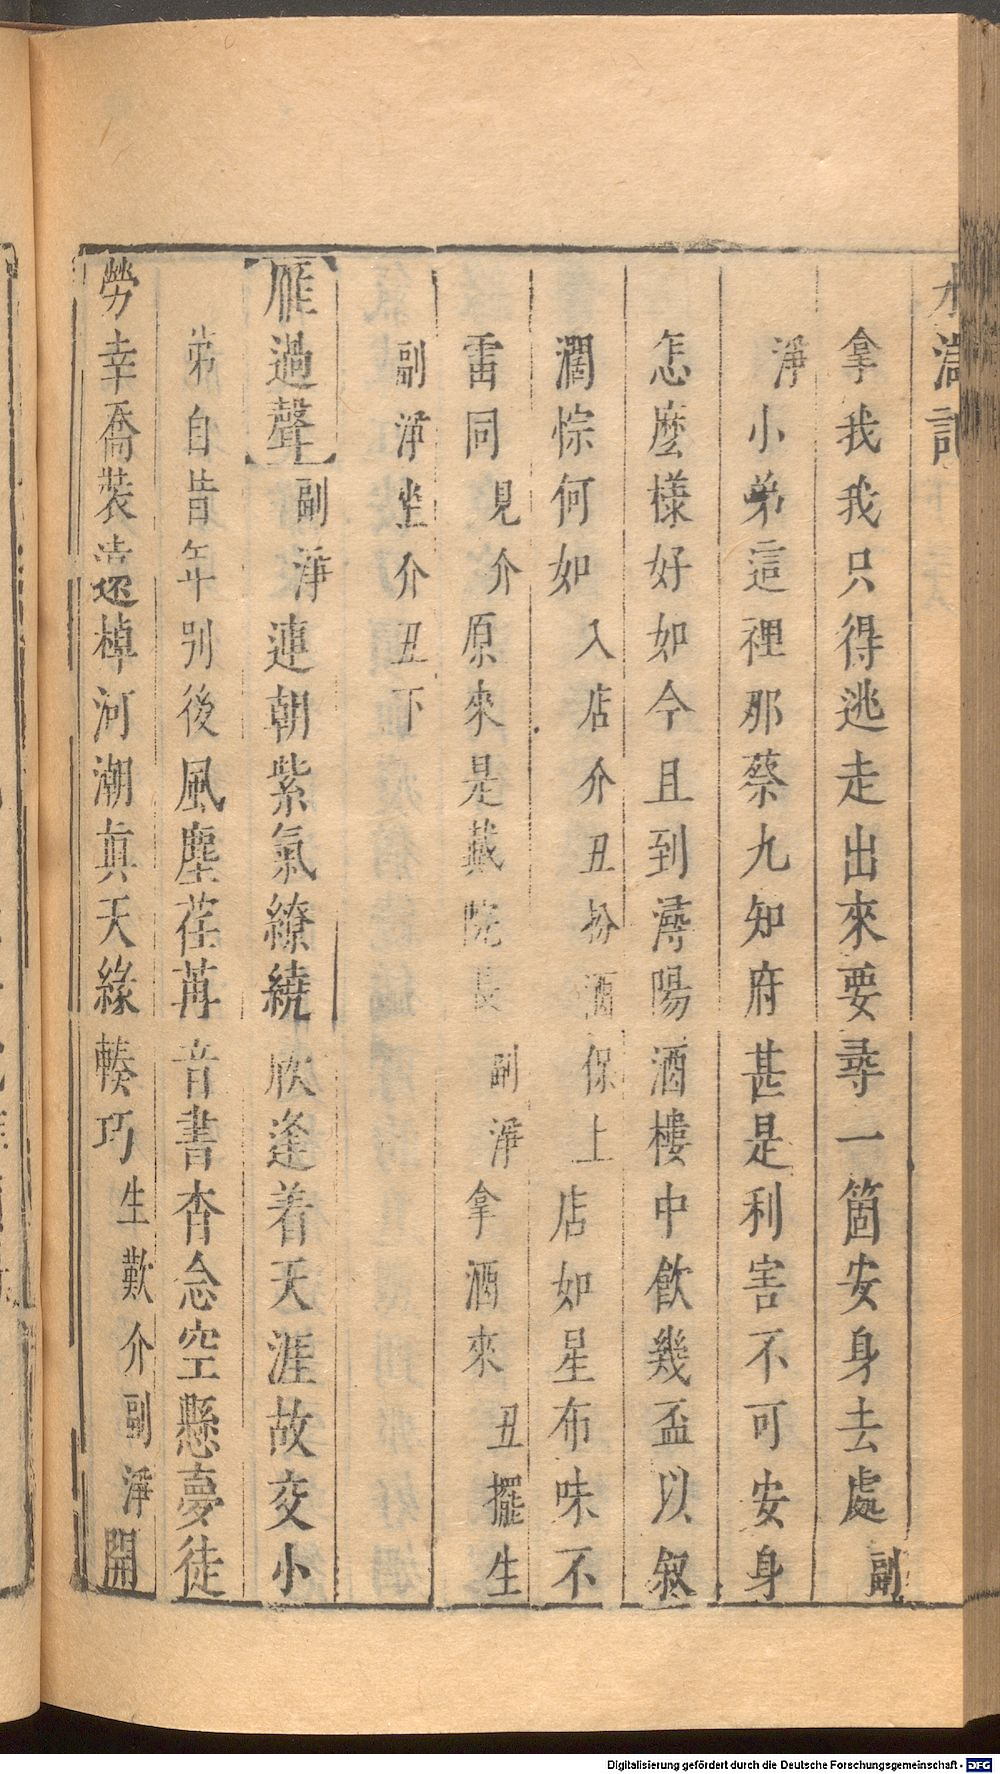 水滸記
拿我我只得逃走出來要尋一箇安身去處副
淨小弟這裡那蔡九知府甚是利害不可安身
怎麼樣好如今且到潯陽酒樓中飲幾盃以叙
濶悰何如入店介丑扮酒保上店如星布味不
雷同見介原來是戴院長副淨拿酒來丑擺生
副淨坐介丑下
【雁過聲】副淨連朝紫氣繚繞欣逢着天涯故交小
弟自昔年别後風塵荏苒音書杳念空懸夢徒
勞幸喬裝遠棹河潮真天緣輳巧生歎介副淨開
Digitalisierung gefördert durch die Deutsche Forschungsgemeinschaft - DFG